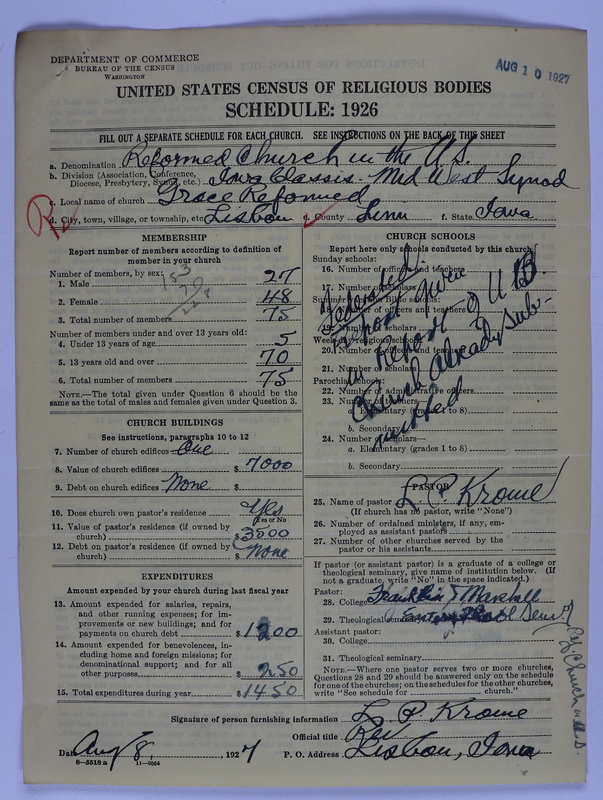 DEPARTMENT OF COMMERCE
BUREAU OF THE CENSUS
WASHINGTON
AUG 10 1927
UNITED STATES CENSUS OF RELIGIOUS BODIES
SCHEDULE: 1926
FILL OUT A SEPARATE SCHEDULE FOR EACH CHURCH. SEE INSTRUCTIONS ON THE BACK OF THIS SHEET
a. Denomination Reformed Church in the U.S.
b. Division (Association, Conference, Diocese, Presbytery, Synod, etc.) Iowa Classis - Mid West Synod
c. Local name of church Grace Reformed
d. City, town, village, or township, etc. Lisbon e. County Linn f. State Iowa
MEMBERSHIP
Report number of members according to definition of
member in your church
Number of members, by sex:
1. Male 27
2. Female 48
3. Total number of members 75
Number of members under and over 13 years old:
4. Under 13 years of age 5
5. 13 years old and over 70
6. Total number of members 75
NOTE.—The total given under Question 6 should be
same as the total of males and females given under Question 3.
CHURCH BUILDINGS
See instructions, paragraphs 10 to 12
7. Number of church edifices One
8. Value of church edifices $ 7000
9. Debt on church edifices None $
10. Does church own pastor's residence Yes
Yes or No
11. Value of pastor's residence (if owned by
church) $ 3500
12. Debt on pastor's residence (if owned by
church) $ None
EXPENDITURES
Amount expended by your church during last fiscal year
13. Amount expended for salaries, repairs,
and other running expenses; for im-
provements or new buildings; and for
payments on church debt $ 1200
14. Amount expended for benevolences, in-
cluding home and foreign missions; for
denominational support; and for all
other purposes $ 250
15. Total expenditures during year $ 1450
CHURCH SCHOOLS
Report here only schools conducted by this church
Sunday schools:
16. Number of officers and teachers
17. Number of scholars
18. Number of officers and teachers
19. Number of scholars
20. Number of officers and teachers
21. Number of scholars
Parochial schools:
22. Number of administrative officers
23. Number of teachers—
a. Elementary (grades 1 to 8)
b. Secondary
24. Number of scholars—
a. Elementary (grades 1 to 8)
b. Secondary
Federated.
Report given
in Report of U.B.
Church already sub-
mitted
PASTOR
25. Name of pastor L. P. Krome
(If church has no pastor, write "None")
26. Number of ordained ministers, if any, em-
ployed as assistant pastors
27. Number of other churches served by the
pastor or his assistants
If pastor (or assistant pastor) is a graduate of a college or
theological seminary, give name of institution below. (If
not a graduate, write "No" in the space indicated.)
Pastor:
28. College Franklin & Marshall
29. Theological seminary
Assistant pastor:
30. College
31. Theological seminary
NOTE.—Where one pastor serves two or more churches,
Questions 28 and 29 should be answered only on the schedule
for one of the churches; on the schedules for the other churches,
write "See schedule for church."
Ref. Church in U.S.
Signature of person furnishing information L. P. Krome
Official title Rev
Date Aug 8, 1927 P. O. Address Lisbon, Iowa
8—5518 a 11—9054